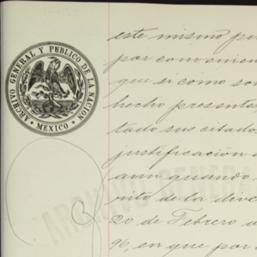 ARCHIVO GENERAL Y PÚBLICO DE LA NACION
• MEXICO •
este mismo
por
que si como
hecho presenta
tado sus citados
justificación
aun quando
rito de la
20 de Febrero
96, en que por